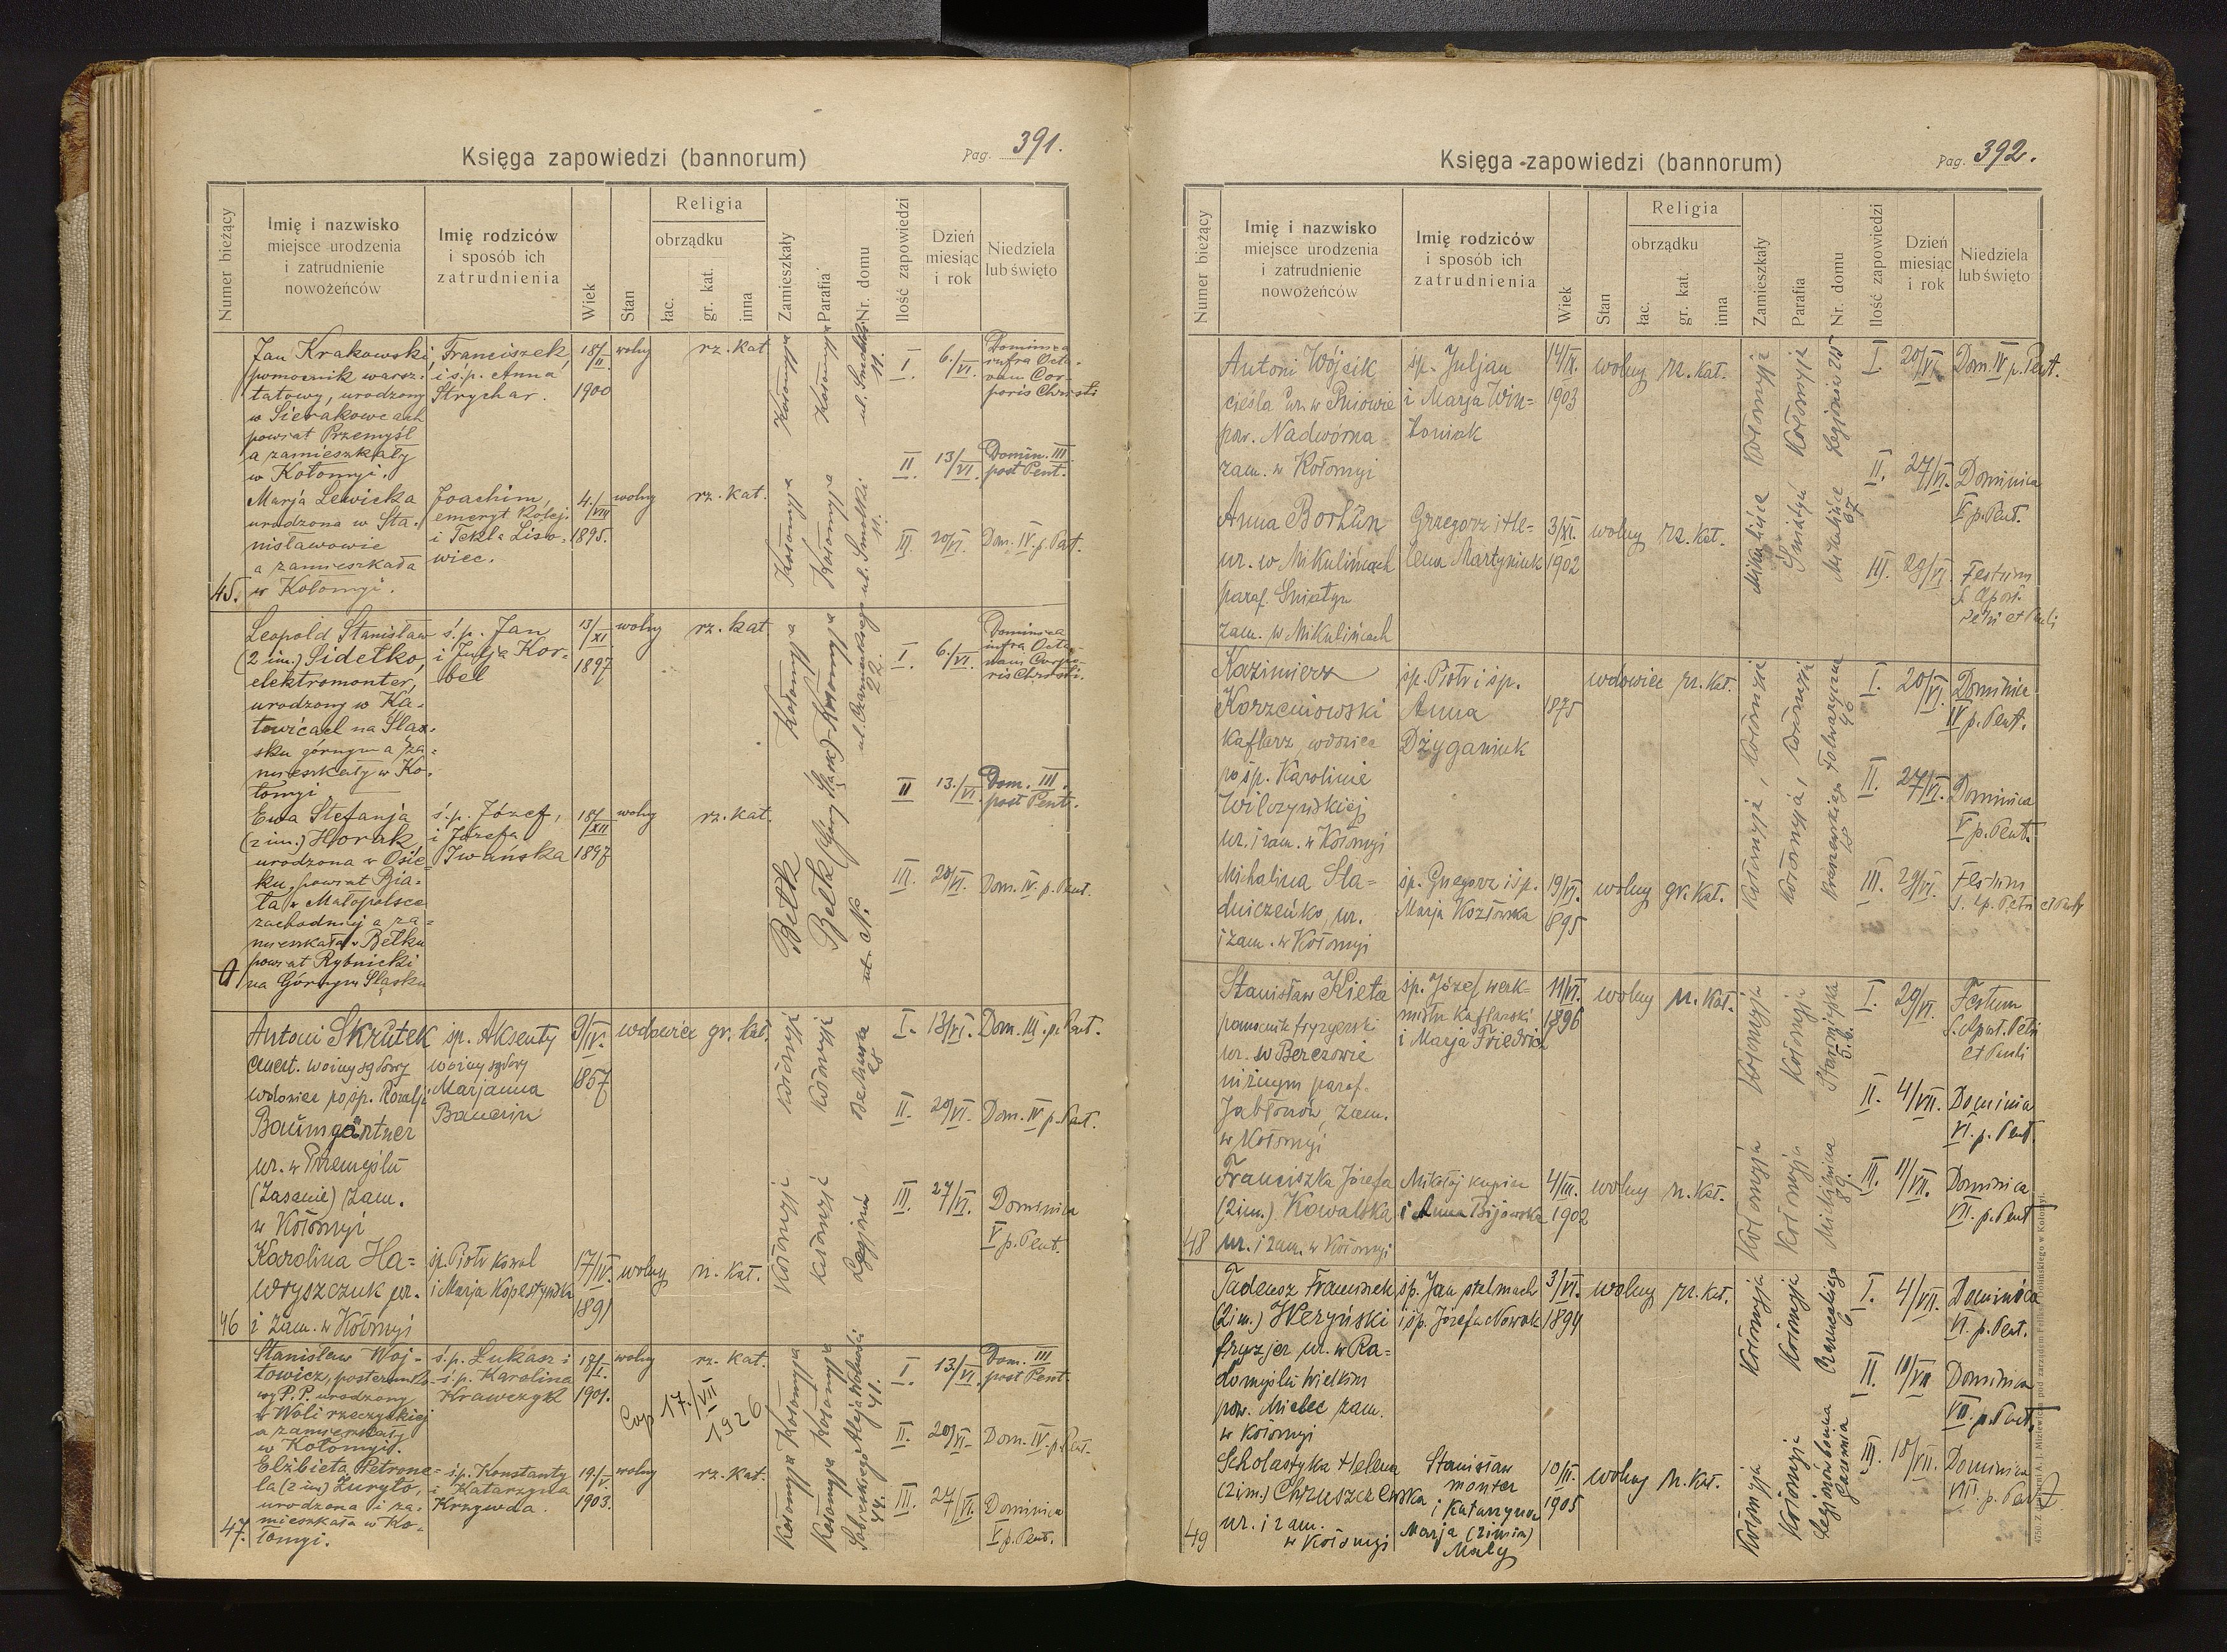 Księga zapowiedzi (bannorum)
Pag. 391.
Numer bieżący
Imię i nazwisko
miejsce urodzenia
i zatrudnienie
nowożeńców
Imię rodziców
i sposób ich
zatrudnienia
Wiek
Stan
Religia
obrządku
łac.
gr. kat.
inna
Zamieszkały
Parafia
Nr. domu
Ilość zapowiedzi
Dzień
miesiąc
i rok
Niedziela
lub święto
45.
Jan Krakowski,
pomocnik warsz-
tatowy, urodzony
w Sierakowcach
powiat Przemyśl
a zamieszkały
w Kołomyi.
Franciszek
i ś.p. Anna
Strychar.
18/II
1900
wolny
rz. kat
Kołomyja
Kołomyja
ul. Smolki
11.
Marja Lewicka
urodzona w Sta-
nisławowie
a zamieszkała
w Kołomyi.
Joachim,
emeryt kolej.
i Tekla Liso-
wiec.
4./VIII
1895.
wolny
rz. kat.
Kołomyja
Kołomyja
ul. Smolki
11.
I. 6./VI. Dominica
infra Octa-
vam Cor-
poris Christi
II 13/VI. Domin. III
post Pent.
III. 20/VI. Dom. IV. p. Pat.
Leopold Stanisław
(2 im.) Sidełko,
elektromonter,
urodzony w Ka-
towicach na Ślą-
sku górnym a za-
mieszkały w Ko-
łomyi
ś.p. Jan
i Julja Kor-
bel
13/XI.
1897
wolny
rz. kat
Kołomyja
22.
Ewa Stefanja
(2 im.) Horak,
urodzona w Osie-
ku, powiat Bia-
ła w Małopolsce
zachodniej a za-
mieszkała w Bełku
powiat Rybnicki
na Górnym Śląsku
ś.p. Józef,
i Józefa
Iwańska
18/XII
1897
wolny
rz. kat.
Bełk
Bełk (Górny Śląsk)
I. 6./VI. Dominica
infra Octa-
vam Corpo-
ris Christi.
II 13./VI Dom. III.
post Pent.
III. 20/VI. Dom. IV. p. Pent.
46
Antoni Skrutek
emert. woźny sądowy
wdowiec po śp. Rozalji
Baumgärtner
ur. w Przemyślu
(Zasanie) zam.
w Kołomyi
śp. Aksenty
woźny sądowy
Marjanna
9/IV.
1857
wdowiec
gr. kat.
Kołomyja
Kołomyja
Karolina Ha-
wryszczuk ur.
i zam. w Kołomyi
śp. Piotr kowal
i Marja
17/IV.
1891
wolny
rz. kat.
Kołomyja
Kołomyja
Legjonów
I. 13/VI. Dom. III. p. Pat.
II. 20/VI. Dom. IV p. Pat.
III. 27/VI. Dominica
V p. Pent.
47.
Stanisław Woj-
towicz, posterunko-
wy P.P. urodzony
w Woli rzeczyckiej
a zamieszkały
w Kołomyi.
ś.p. Łukasz i
ś.p. Karolina
Krawczyk
18/I.
1901.
wolny
rz. kat.
Cop. 17./VII
1926
Kołomyja
Kołomyja
Aleja Wolności
41.
Elżbieta Petrone-
la (2 im) Zuryło,
urodzona i za-
mieszkała w Ko-
łomyi.
ś.p. Konstanty
i Katarzyna
Krzywda.
19./V.
1903.
wolny
rz. kat.
Kołomyja
Kołomyja
Sobieskiego
44.
I 13./VI Dom. III
post Pent
II. 20/VI. Dom. IV. p. Pent.
III. 27/VI. Dominica
V p. Pent.
Księga zapowiedzi (bannorum)
Pag. 392.
Numer bieżący
Imię i nazwisko
miejsce urodzenia
i zatrudnienie
nowożeńców
Imię rodziców
i sposób ich
zatrudnienia
Wiek
Stan
Religia
obrządku
łac.
gr. kat.
inna
Zamieszkały
Parafia
Nr. domu
Ilość zapowiedzi
Dzień
miesiąc
i rok
Niedziela
lub święto
Antoni Wójcik
cieśla ur. w Pniowie
pow. Nadwórna
zam. w Kołomyi
śp. Juljan
i Marja Win-
toniak
14/IX.
1903
wolny
rz. kat.
Kołomyja
Kołomyja
Legjonów 215
Anna Borhün
ur. w Mikulińcach
paraf. Śniatyn
zam. w Mikulińcach
Grzegorz i He-
lena Martyniuk
3/XI.
1902
wolny
rz. kat.
Mikulińce
Śniatyń
Mikulińce
67
I. 20/VI. Dom. IV p. Pent.
II. 27/VI. Dominica
V p. Pent.
III. 29/VI Festum
S. Apost.
Petri et Pauli
Kazimierz
Korzeniowski
kaflarz wdowiec
po śp. Karolinie
Wilczyńskiej
ur. i zam. w Kołomyi
śp. Piotr i śp.
Anna
Dżyganiuk
1875
wdowiec
rz. kat.
Kołomyja
Kołomyja
Folwarczna
46
Michalina Sła-
dniczeńko, ur.
i zam. w Kołomyi
śp. Grzegorz i śp.
Marja Kozłowska
19/VI.
895
wolny
gr. kat.
Kołomyja
Kołomyja
Kraszewskiego
18
I. 20/VI. Dominica
IV p. Pent.
II. 27/VI. Dominica
V p. Pent.
III. 29/VI. Festum
S. Ap. Petri et Pauli
48
Stanisław Kieta
pomocnik fryzjerski
ur. w Berezowie
niżnym paraf.
Jabłonów, zam.
w Kołomyi
śp. Józef werk-
mistrz kaflarski
i Marja Friedrich
11/VI.
1896
wolny
rz. kat.
Kołomyja
Kołomyja
Staromiejska
56.
Franciszka Józefa
(2im.) Kowalska
ur. i zam. w Kołomyi
Mikołaj kupiec
i Anna Bijowska
4/III.
1902
wolny
rz. kat.
Kołomyja
Kołomyja
Mickiewicza
89.
I. 29/VI. Festum
S. Apost. Petri
et Pauli
II. 4/VII. Dominica
VI. p. Pent.
III. 11/VII. Dominica
VII. p. Pent
49
Tadeusz Franciszek
(2im.) Weryński
fryzjer ur. w Ra-
domyślu Wielkim
pow. Mielec zam.
w Kołomyi
śp. Jan stelmach
i śp. Józefa Nowak
3/VI.
1894
wolny
rz. kat.
Kołomyja
Kołomyja
6
Scholastyka Helena
(2im.) Chruszczewska
ur. i zam.
w Kołomyi
Stanisław
monter
i Katarzyna
Marja (2 imion)
Mały
10/II.
1905
wolny
rz. kat.
Kołomyja
Kołomyja
I. 4/VII. Dominica
VI. p. Pent.
II. 11/VII Dominica
VII. p. Pent.
III. 18/VII. Dominica
VIII. p. Pent.